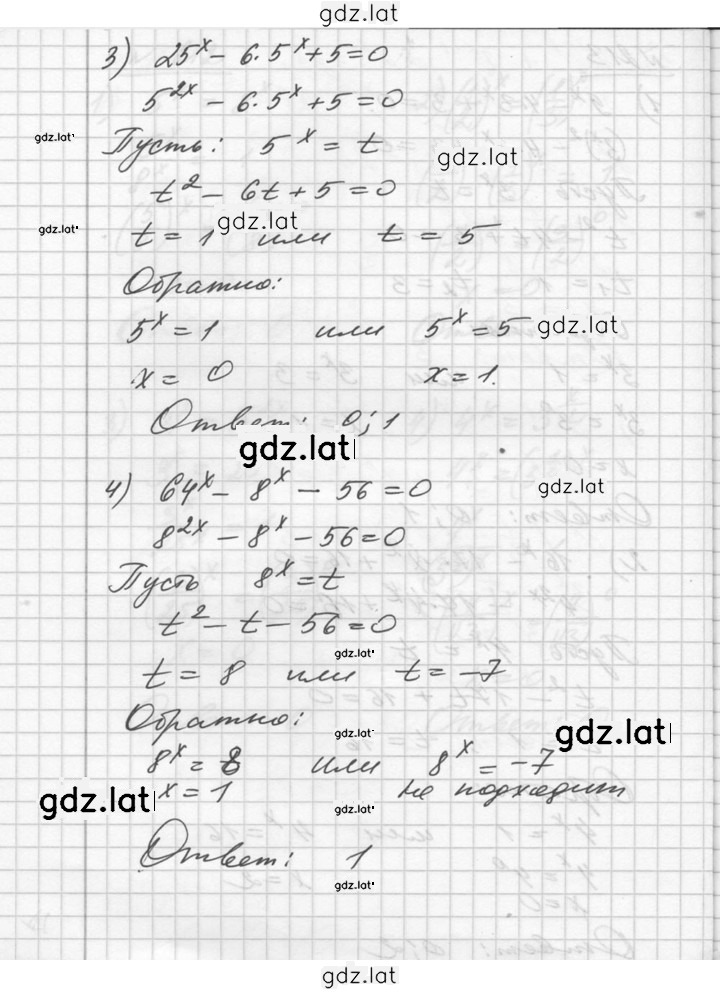 gdz.lat
3) 25ˣ - 6·5ˣ + 5 = 0
5²ˣ - 6·5ˣ + 5 = 0
gdz.lat
Пусть: 5ˣ = t
gdz.lat
t² - 6t + 5 = 0
gdz.lat
gdz.lat
t = 1 или t = 5
Обратно:
5ˣ = 1 или 5ˣ = 5
gdz.lat
x = 0 x = 1.
Ответ: 0; 1
gdz.lat
4) 64ˣ - 8ˣ - 56 = 0
gdz.lat
8²ˣ - 8ˣ - 56 = 0
Пусть 8ˣ = t
t² - t - 56 = 0
gdz.lat
t = 8 или t = -7
Обратно:
gdz.lat
gdz.lat
8ˣ = 8 или 8ˣ = -7
gdz.lat
x = 1 не подходит
gdz.lat
Ответ: 1
gdz.lat
gdz.lat